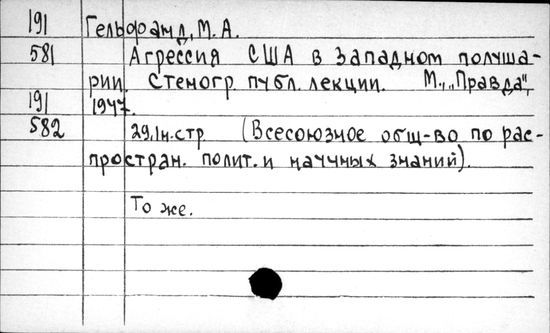 191 Гельфанд, М. А.
581 Агрессия США в западном полуша-
рии. Стеногр. публ. лекции. М., „Правда",
191 1947.
582 29,1н.стр (Всесоюзное общ-во по рас-
простран. полит. и научных знаний).
То же.